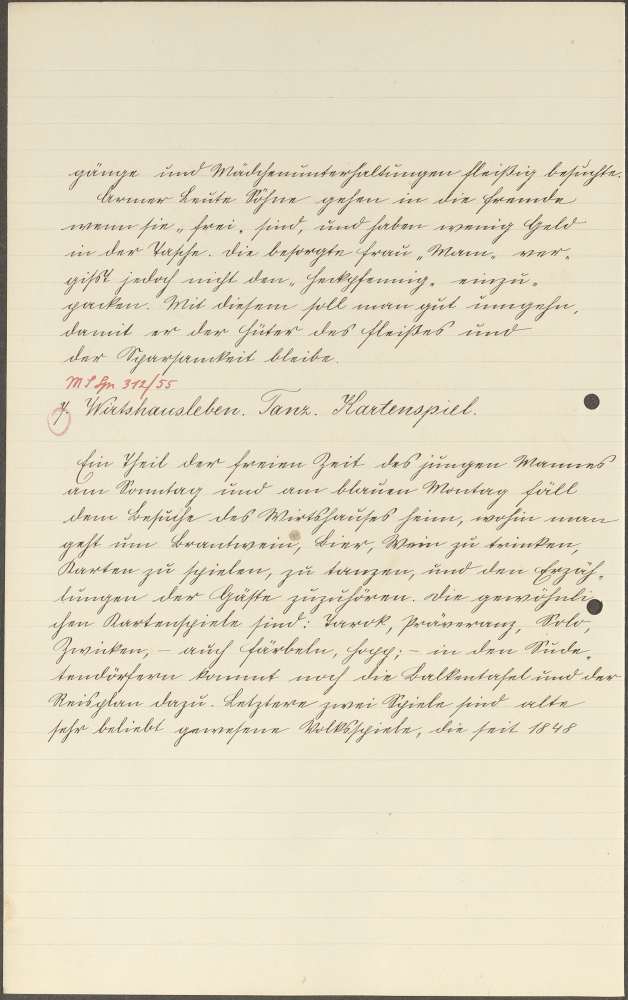 gänge und Mädchenunterhaltungen fleißig besuchte.
Armer Leute Söhne gehen in die Fremde
wenn sie „frei„ sind, und haben wenig Geld
in der Tasche. Die besorgte Frau „Mam„ ver-
gißt jedoch nicht den „Heckpfennig„ einzu-
packen. Mit diesem soll man gut umgehn,
damit er der Hüter des Fleißes und
der Sparsamkeit bleibe.
312/55
7. Wirtshausleben. Tanz. Kartenspiel.
Ein Theil der freien Zeit des jungen Mannes
am Sonntag und am blauen Montag fäll
dem Besuche des Wirtshauses heim, wohin man
geht um Brantwein, Bier, Wein zu trinken,
Karten zu spielen, zu tanzen, und den Erzäh-
lungen der Gäste zuzuhören. Die gewöhnli-
chen Kartenspiele sind: Tarok, Präveranz, Solo,
Zwicken, – auch färbeln, hopp; – in den Sude-
tendörfern kommt noch die Balkentafel und der
Reisplan dazu. Letztere zwei Spiele sind alte
sehr beliebt gewesene Volksspiele, die seit 1848